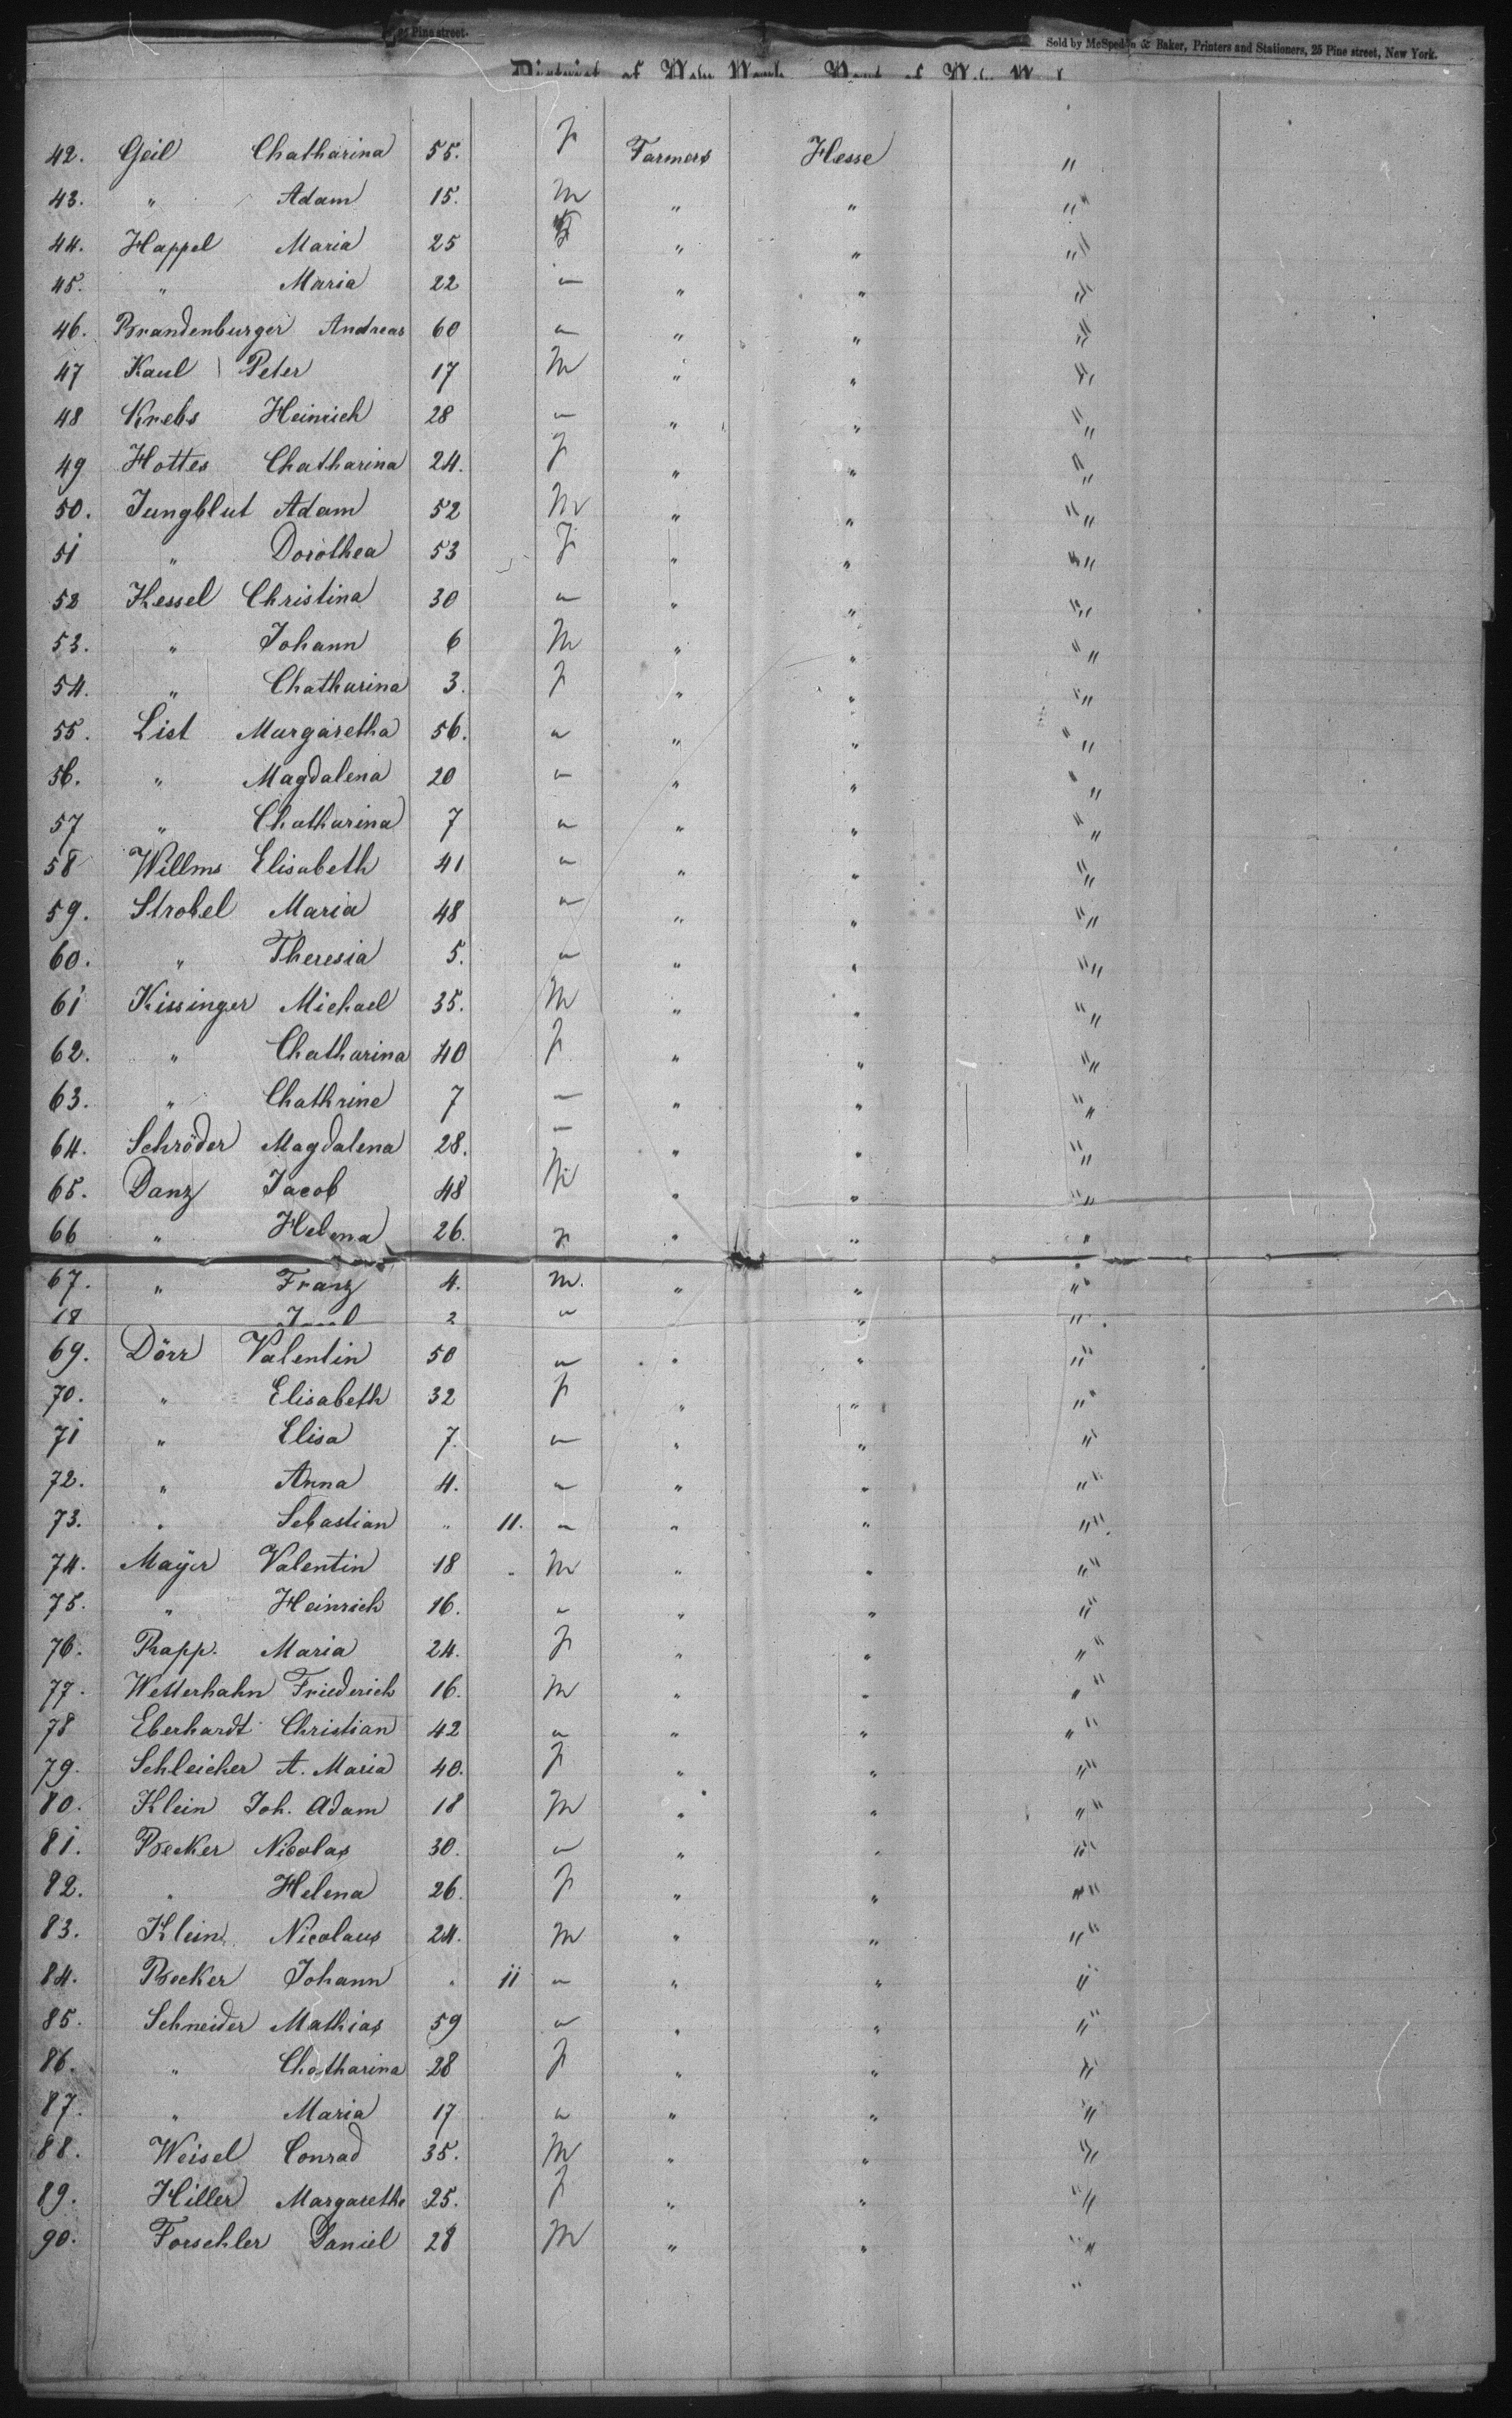 25 Pine street.
Sold by McSpedon & Baker, Printers and Stationers, 25 Pine street, New York.
District of New York
42. Geil Chatharina 55. F Farmers Hesse "
43. " Adam 15. M " " " "
44. Happel Maria 25 F " " " "
45. " Maria 22 " " " " "
46. Brandenburger Andreas 60 " " " " "
47 Kaul Peter 17 M " " " "
48 Krebs Heinrich 28 " " " " "
49 Hottes Chatharina 24. F " " " "
50. Jungblut Adam 52 M " " " "
51 " Dorothea 53 F " " " "
52 Hessel Christina 30 " " " " "
53. " Johann 6 M " " " "
54. " Chatharina 3. F " " " "
55. List Margaretha 56. " " " " "
56. " Magdalena 20 " " " " "
57 " Chatharina 7 " " " " "
58 Willms Elisabeth 41 " " " " "
59. Strobel Maria 48 " " " " "
60. " Theresia 5. " " " " "
61 Kissinger Michael 35. M " " " "
62. " Chatharina 40 F " " " "
63. " Chathrine 7 — " " " "
64. Schröder Magdalena 28. — " " " "
65. Danz Jacob 48 M " " " "
66 " Helena 26. F " " "
67. " Franz 4. M. " " " "
2 " " "
69. Dörr Valentin 50 " " " " "
70. " Elisabeth 32 F " " " "
71 " Elisa 7. " " " " "
72. " Anna 4. " " " " "
73. " Sebastian " 11. " " " " "
74. Mayer Valentin 18 " M " " " "
75. " Heinrich 16. " " " " "
76. Rapp. Maria 24. F " " " "
77. Wetterhahn Friederich 16. M " " " "
78 Eberhardt Christian 42 " " " " "
79. Schleicher A. Maria 40. F " " " "
80. Klein Joh. Adam 18 M " " " "
81. Becker Nicolas 30. " " " " "
82. " Helena 26. F " " " "
83. Klein Nicolaus 24. M " " " "
84. Becker Johann " 11 " " " " "
85. Schneider Mathias 59 " " " " "
86. " Chatharina 28 F " " " "
87. " Maria 17 " " " " "
88. Weisel Conrad 35. M " " " "
89. Hiller Margarethe 25. F " " " "
90. Forschler Daniel 28 M " " " "
"